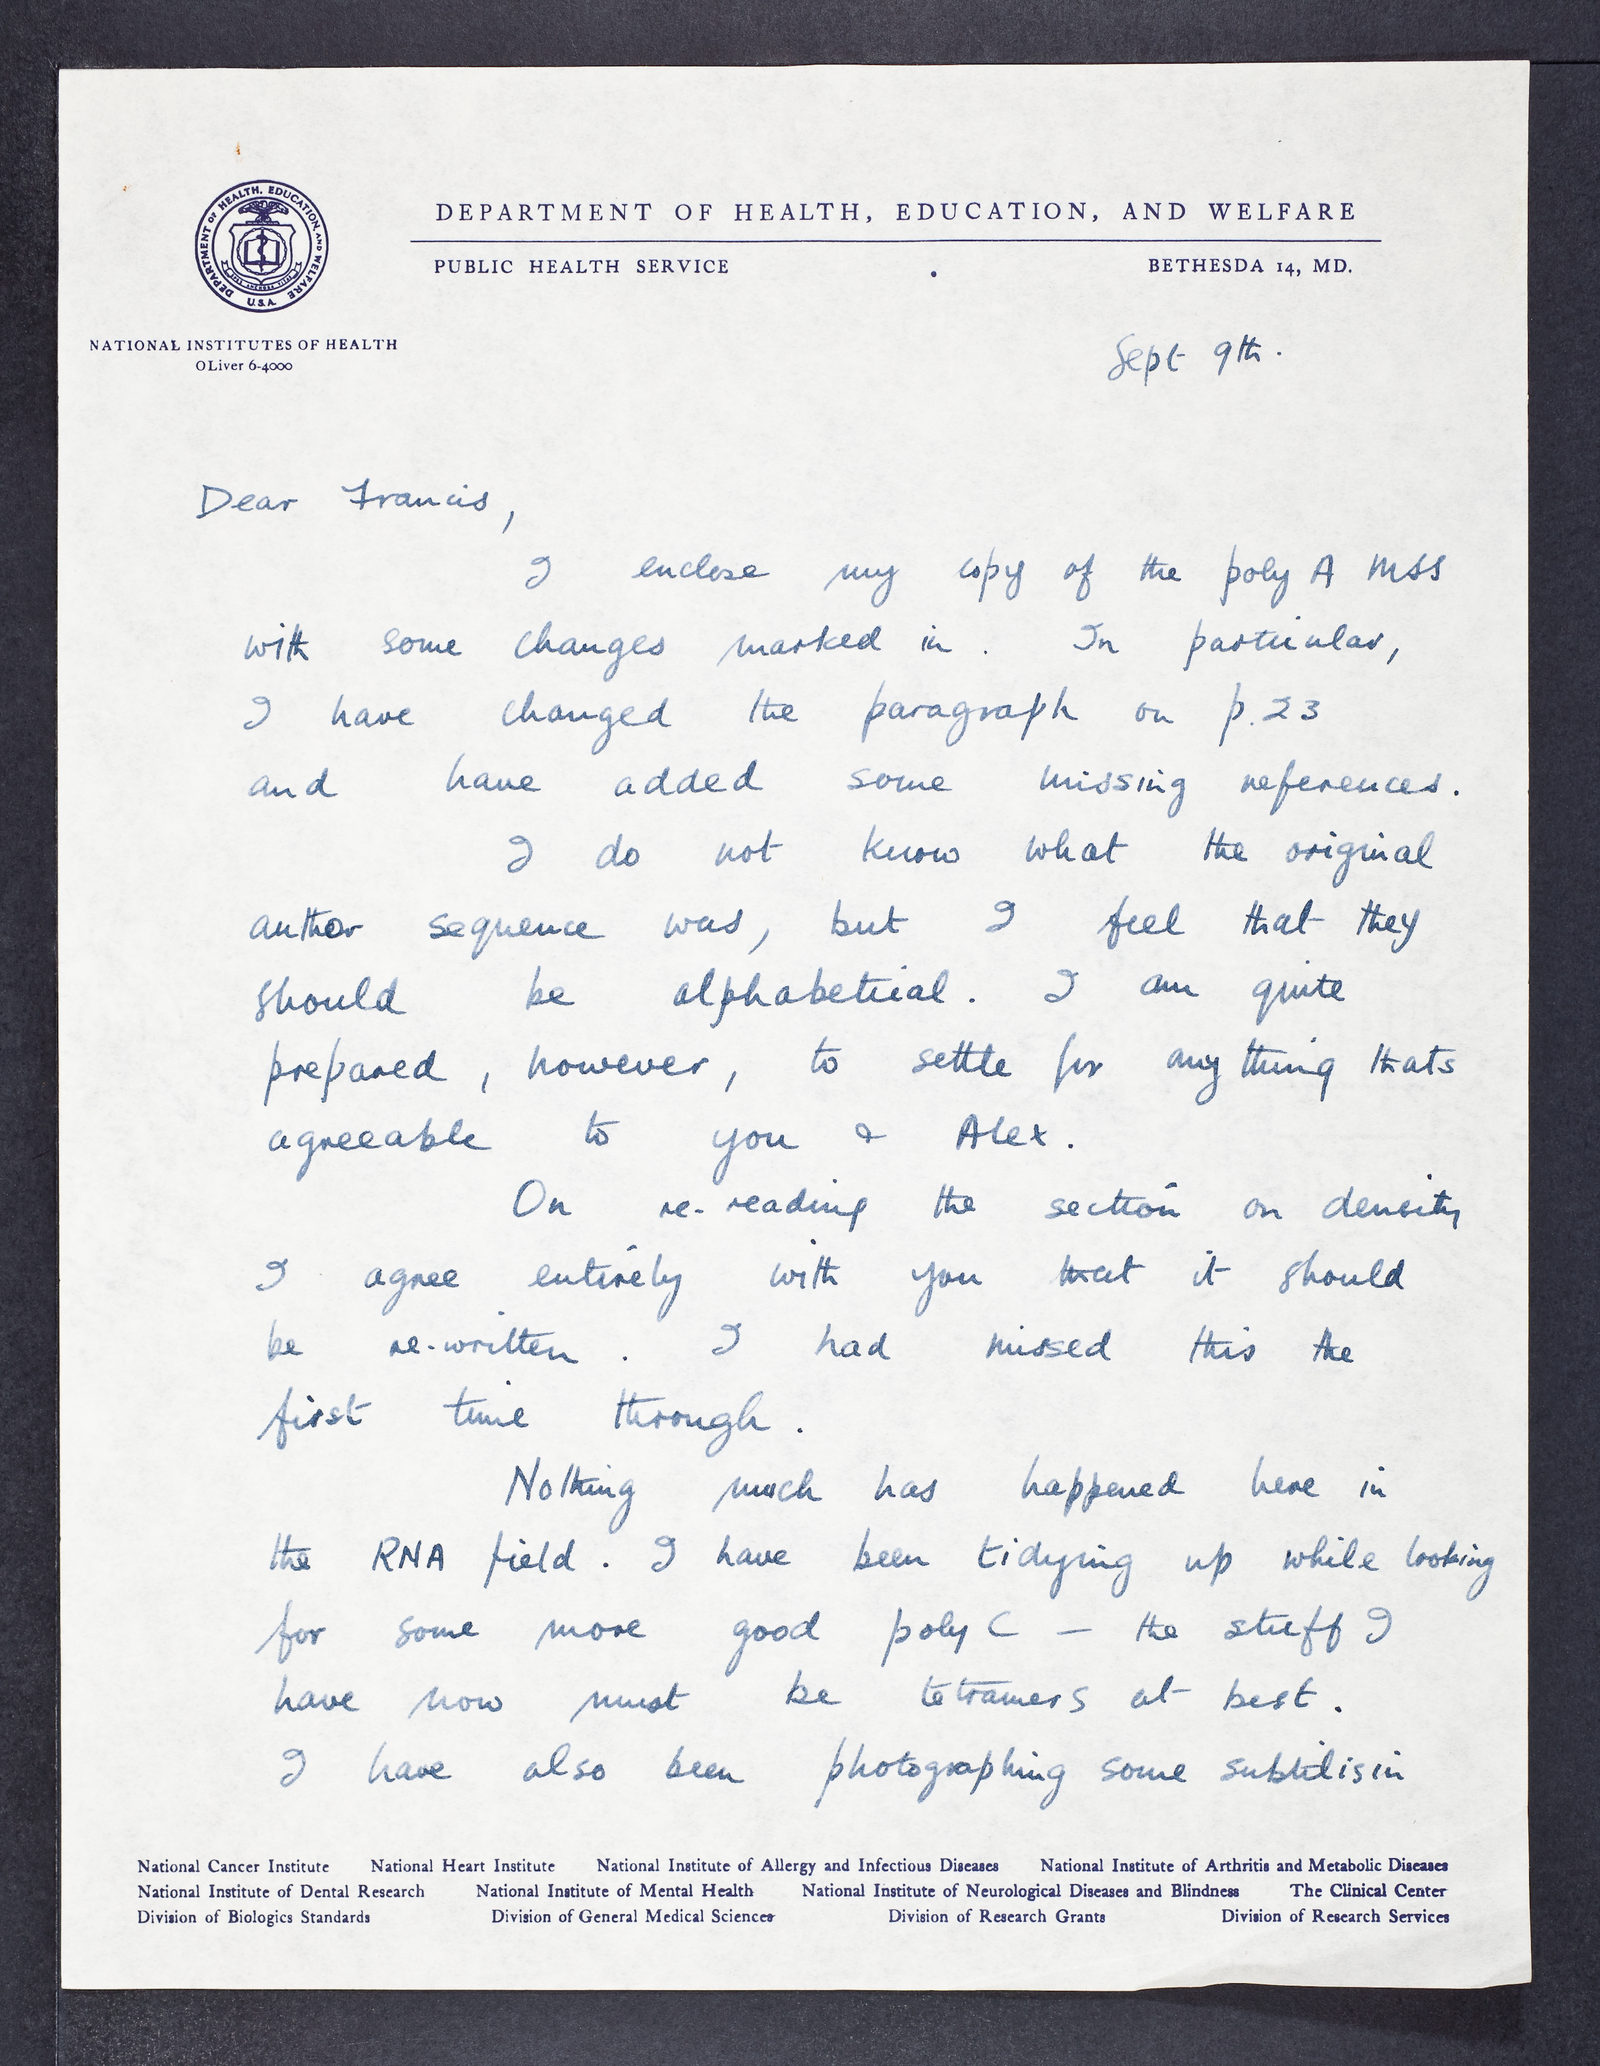 DEPARTMENT OF HEALTH, EDUCATION, AND WELFARE
U.S.A.
DEPARTMENT OF HEALTH, EDUCATION, AND WELFARE
PUBLIC HEALTH SERVICE BETHESDA 14, MD.
NATIONAL INSTITUTES OF HEALTH
OLiver 6-4000
Sept 9th.
Dear Francis,
I enclose my copy of the poly A MSS
with some changes marked in. In particular,
I have changed the paragraph on p. 23
and have added some missing references.
I do not know what the original
author sequence was, but I feel that they
should be alphabetical. I am quite
prepared, however, to settle for anything thats
agreeable to you & Alex.
On re-reading the section on density
I agree entirely with you that it should
be re-written. I had missed this the
first time through.
Nothing much has happened here in
the RNA field. I have been tidying up while looking
for some more good poly C – the stuff I
have now must be tetramers at best.
I have also been photographing some subtilisin
National Cancer Institute National Heart Institute National Institute of Allergy and Infectious Diseases National Institute of Arthritis and Metabolic Diseases
National Institute of Dental Research National Institute of Mental Health National Institute of Neurological Diseases and Blindness The Clinical Center
Division of Biologics Standards Division of General Medical Sciences Division of Research Grants Division of Research Services